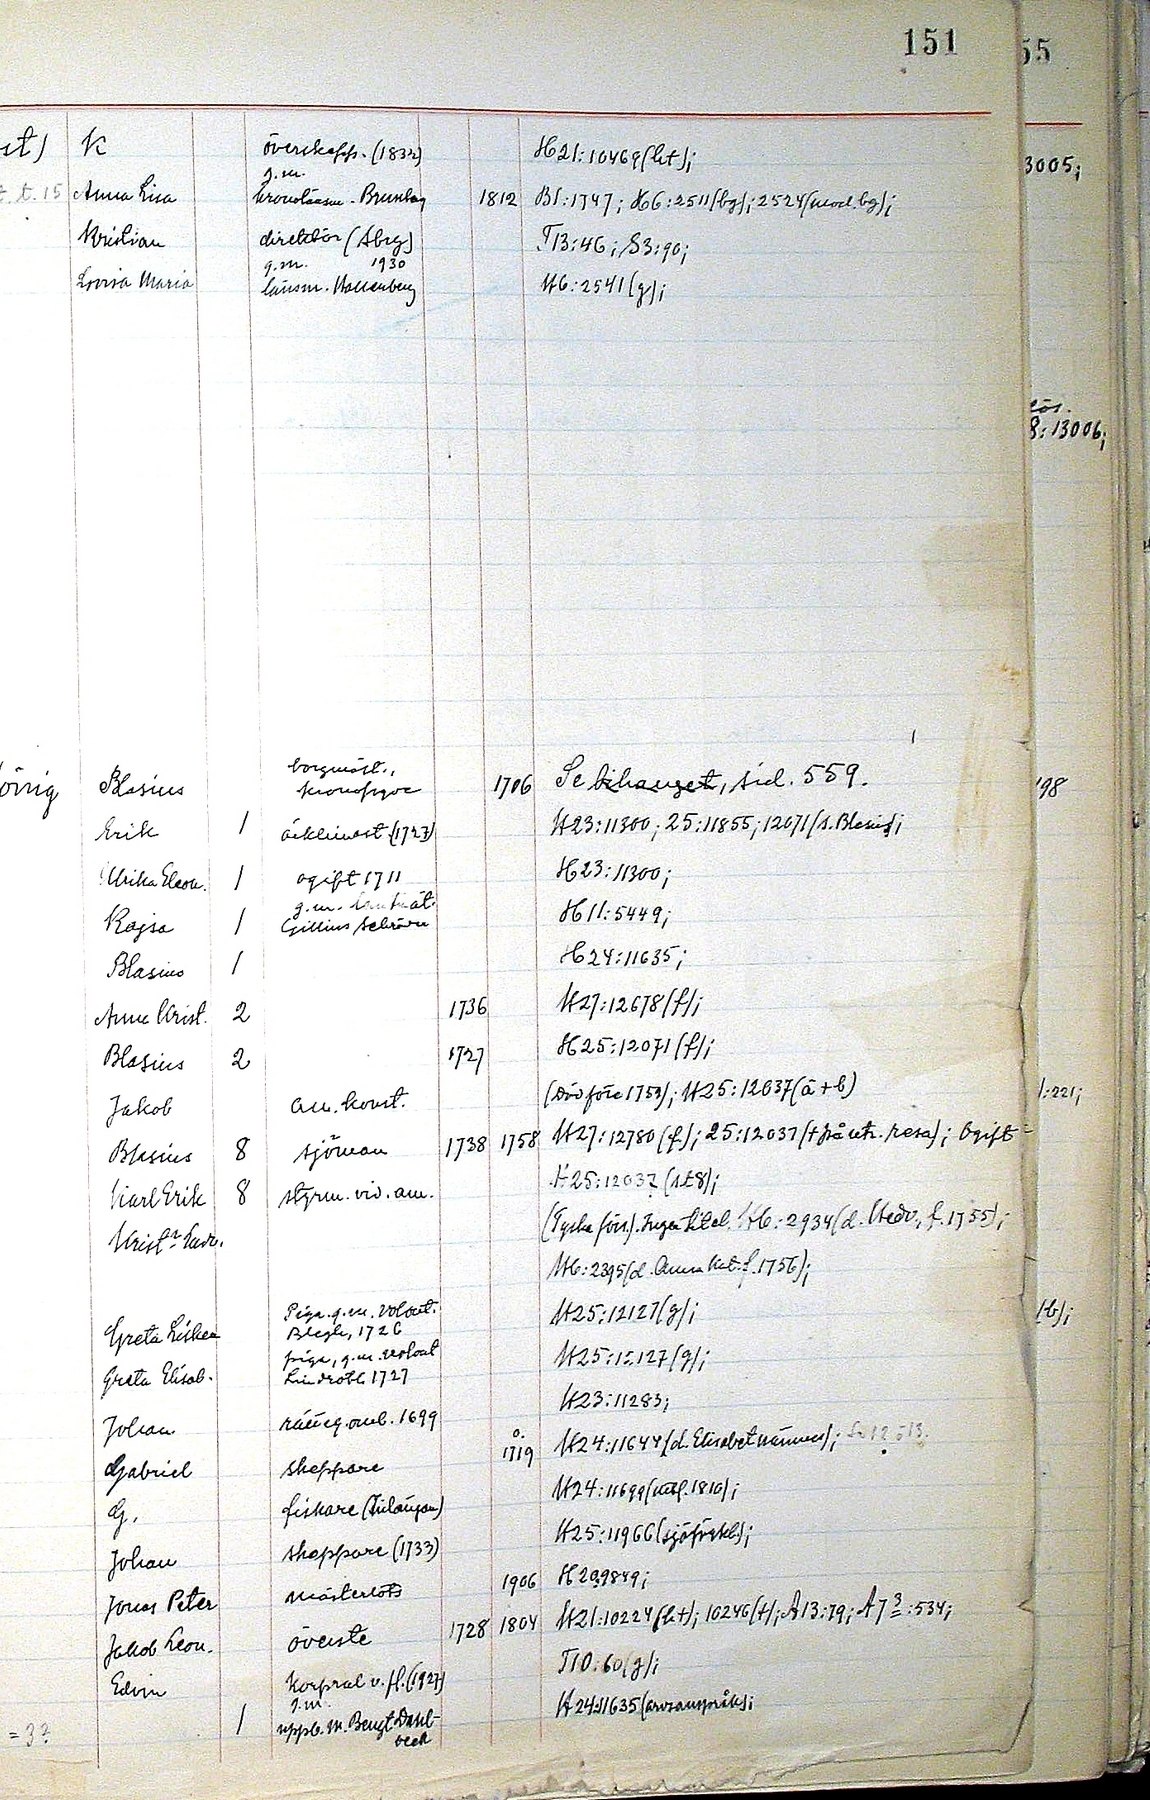 151
55
K överskepp. (1832) H21:10469(ht);
g.m.
t. 15 Anna Lisa kronolänsm. 1812 B1:1747; H6:2511(bg); 2524(mod. bg);
3005;
Kristian direktör (Åbg) T13:46; S3:90;
g.m. 1930
Lovisa Maria länsm. Wallenberg H6:2541(g);
8:13006;
borgmäst.,
Blasius kronofogde 1706 Se bihanget, sid. 559.
'98
Erik 1 (1727) H23:11300; 25:11855; 12071(s. Blasius);
Ulrika Eleon. 1 ogift 1711 H23:11300;
g.m.
Kajsa 1 Gillius H11:5449;
Blasius 1 H24:11635;
Anna Krist. 2 1736 H27:12678(f);
Blasius 2 1727 H25:12071(f);
Jakob am. konst. (Död före 1753); H25:12037(ä+b)
:221;
Blasius 8 sjöman 1738 1758 H27:12780(f); 25:12037(+ på utr. resa); Ogift
Karl Erik 8 styrm. vid. am. H25:12037(st8);
(Tyska förs). Ingen titel. H6:2934(d. Hedv, f. 1755);
H6:2395(d. Anna Kat. f. 1756);
Piga. g.m. volont. H25:12127(g); (b);
Greta Lisken 1726
piga, g.m. volont H25:12127(g);
Greta Elisab. Lindroth 1727
H23:11283;
Johan omb. 1699
Gabriel skeppare 1719 H24:11644(d. Elisabet nämnes);
G. fiskare H24:11699(1810);
Johan skeppare (1733) H25:11966
Jonas Peter mästerlots 1906 H20:9849;
Jakob Leon. överste 1728 1804 H21:10224(ht); 10246(+); A13:79; A7³:534;
Edvin korpral v. fl. (1927) T10:60(g);
g.m.
=3? 1 uppb. m. Bengt Dahl- H24:11635(arvsanspråk);
beck